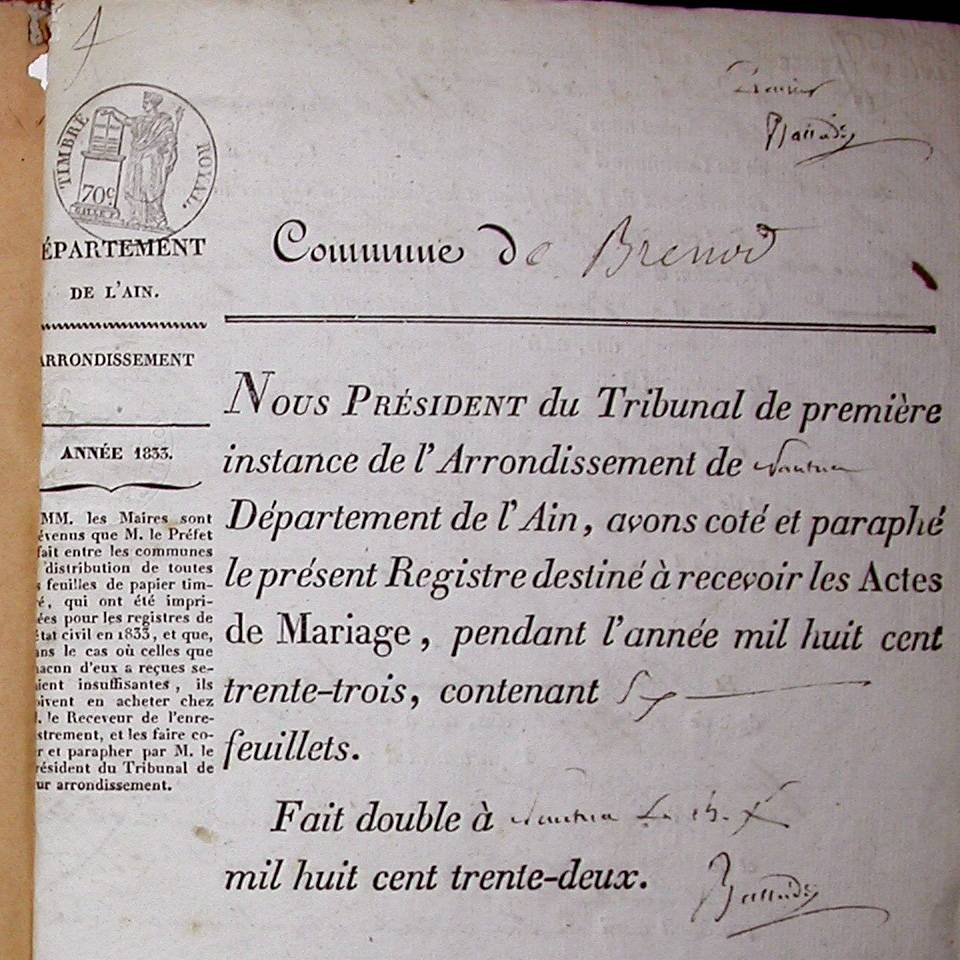 TIMBRE ROYAL.
70c
Commune de Brenod
ÉPARTEMENT
DE L'AIN.
ARRONDISSEMENT
ANNÉE 1833.
MM. les Maires sont
évenus que M. le Préfet
fait entre les communes
distribution de toutes
s feuilles de papier tim-
é, qui ont été impri-
ées pour les registres de
état civil en 1833, et que,
ans le cas où celles que
hacun d'eux a reçues se-
aient insuffisantes, ils
oivent en acheter chez
I. le Receveur de l'enre-
strement, et les faire co-
r et parapher par M. le
résident du Tribunal de
ur arrondissement.
NOUS PRÉSIDENT du Tribunal de première
instance de l'Arrondissement de Nantua
Département de l'Ain, avons coté et paraphé
le présent Registre destiné à recevoir les Actes
de Mariage, pendant l'année mil huit cent
trente-trois, contenant
feuillets.
Fait double à Nantua
mil huit cent trente-deux.